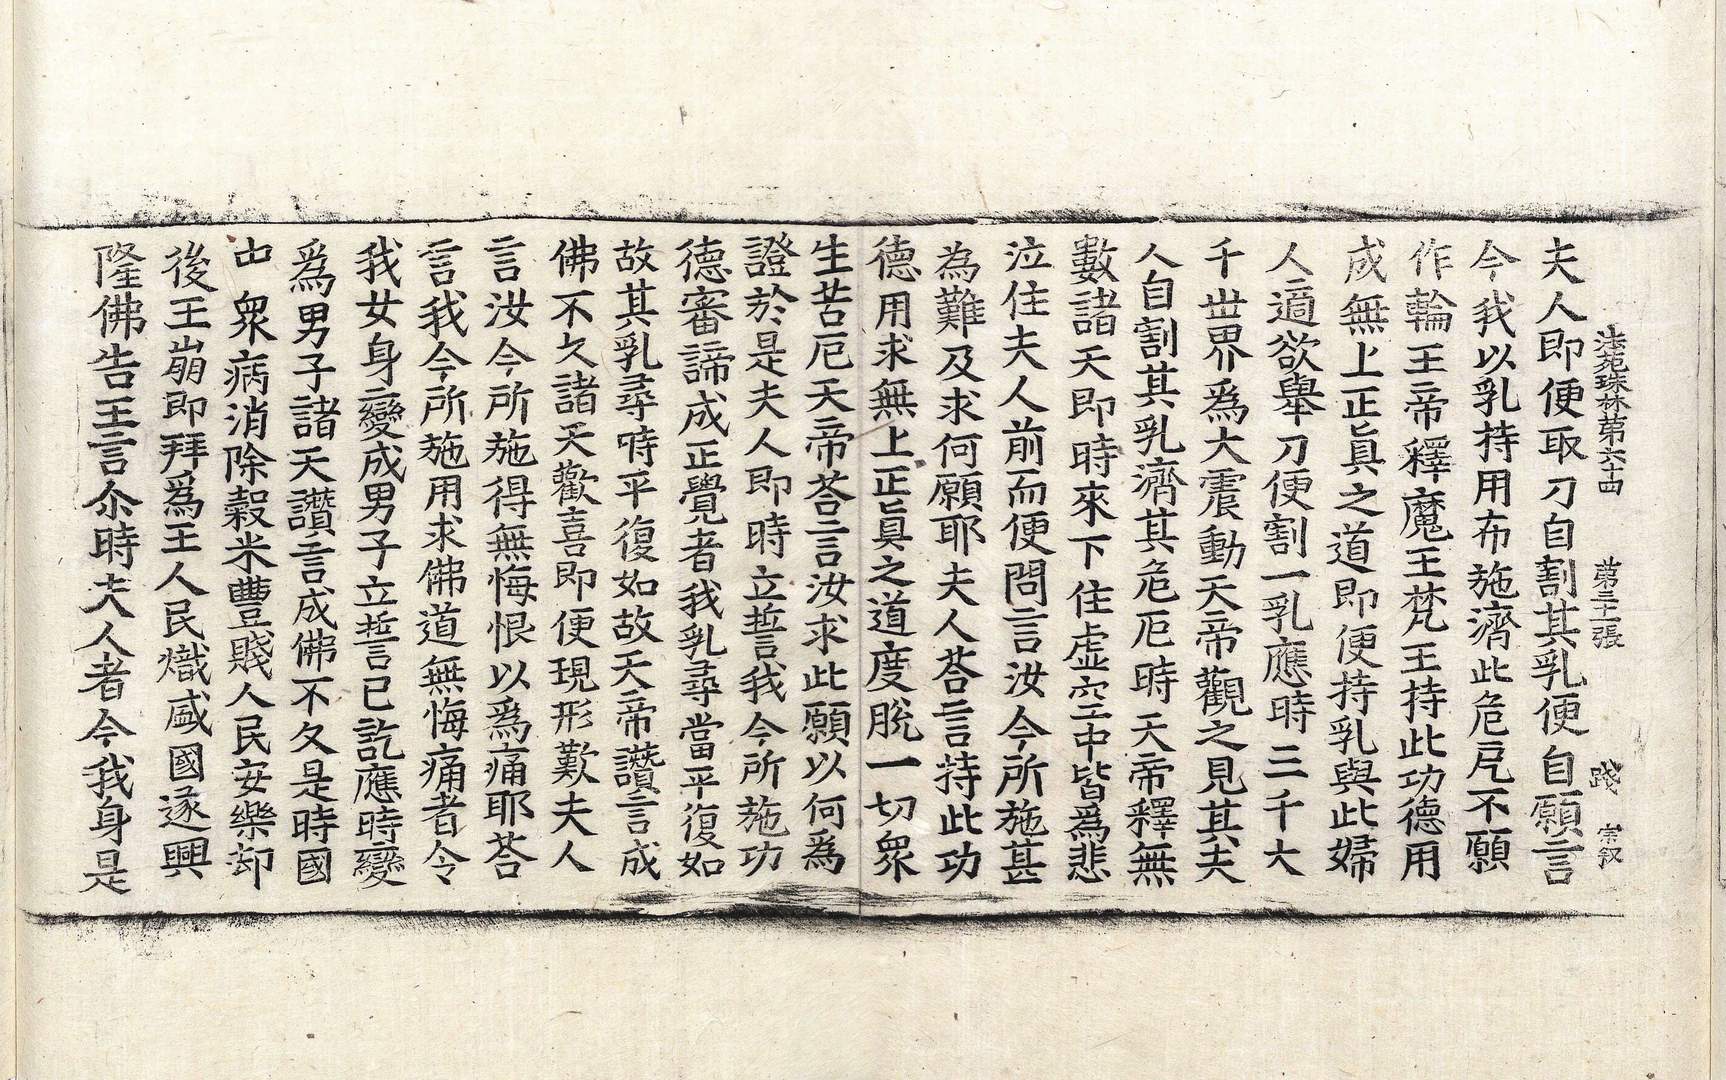 法苑珠林第六十四 第三十一張 踐 宗叙
夫人即便取刀自割其乳便自願言
今我以乳持用布施濟此危厄不願
作輪王帝釋魔王梵王持此功德用
成無上正眞之道即便持乳與此婦
人適欲舉刀便割一乳應時三千大
千世界爲大震動天帝觀之見其夫
人自割其乳濟其危厄時天帝釋無
數諸天即時來下住虛空中皆爲悲
泣住夫人前而便問言汝今所施甚
為難及求何願耶夫人荅言持此功
德用求無上正眞之道度脫一切衆
生苦厄天帝荅言汝求此願以何爲
證於是夫人即時立誓我今所施功
德審諦成正覺者我乳尋當平復如
故其乳尋時平復如故天帝讚言成
佛不久諸天歡喜即便現形歎夫人
言汝今所施得無悔恨以爲痛耶荅
言我今所施用求佛道無悔痛者令
我女身變成男子立誓已訖應時變
爲男子諸天讚言成佛不久是時國
中衆病消除穀米豐賤人民安樂却
後王崩即拜爲王人民熾盛國遂興
隆佛告王言尒時夫人者今我身是